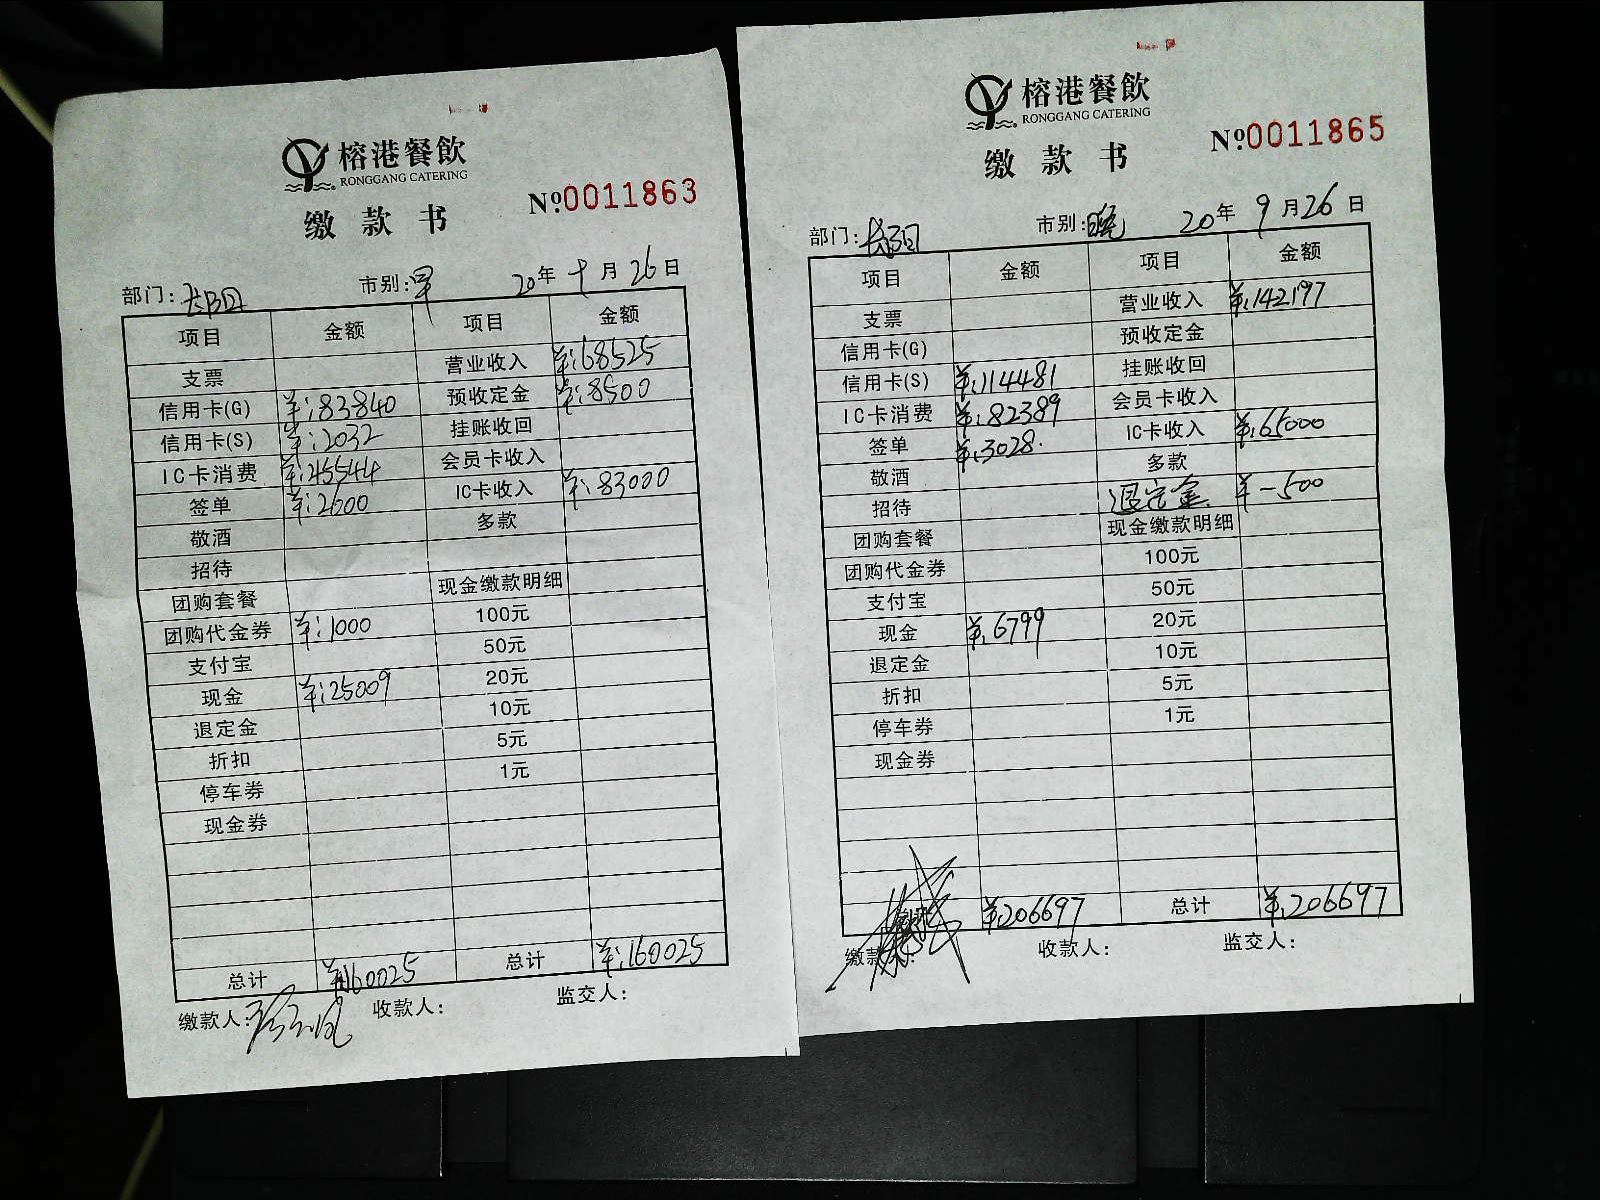 榕港餐飲
RONGGANG CATERING
缴款书
№0011863
部门: 市别:早 20年 月26日
项目 金额 项目 金额
支票 营业收入 ¥:68525
信用卡(G) ¥:83840 预收定金 ¥:8500
信用卡(S) ¥:2032 挂账收回
IC卡消费 ¥:45544 会员卡收入
签单 ¥:2600 IC卡收入 ¥:83000
敬酒 多款
招待
团购套餐 现金缴款明细
团购代金券 ¥:1000 100元
支付宝 50元
现金 ¥:25009 20元
退定金 10元
折扣 5元
停车券 1元
现金券
总计 ¥160025 总计 ¥:160025
缴款人: 收款人: 监交人:
榕港餐飲
RONGGANG CATERING
缴款书
№0011865
部门: 市别:晚 20年9月26日
项目 金额 项目 金额
支票 营业收入 ¥:142197
信用卡(G) 预收定金
信用卡(S) ¥:114481 挂账收回
IC卡消费 ¥:82389 会员卡收入
签单 ¥:3028. IC卡收入 ¥:65000
敬酒 多款
招待 退定金 ¥-500
团购套餐 现金缴款明细
团购代金券 100元
支付宝 50元
现金 ¥:6799 20元
退定金 10元
折扣 5元
停车券 1元
现金券
¥:206697 总计 ¥:206697
缴款人: 收款人: 监交人: